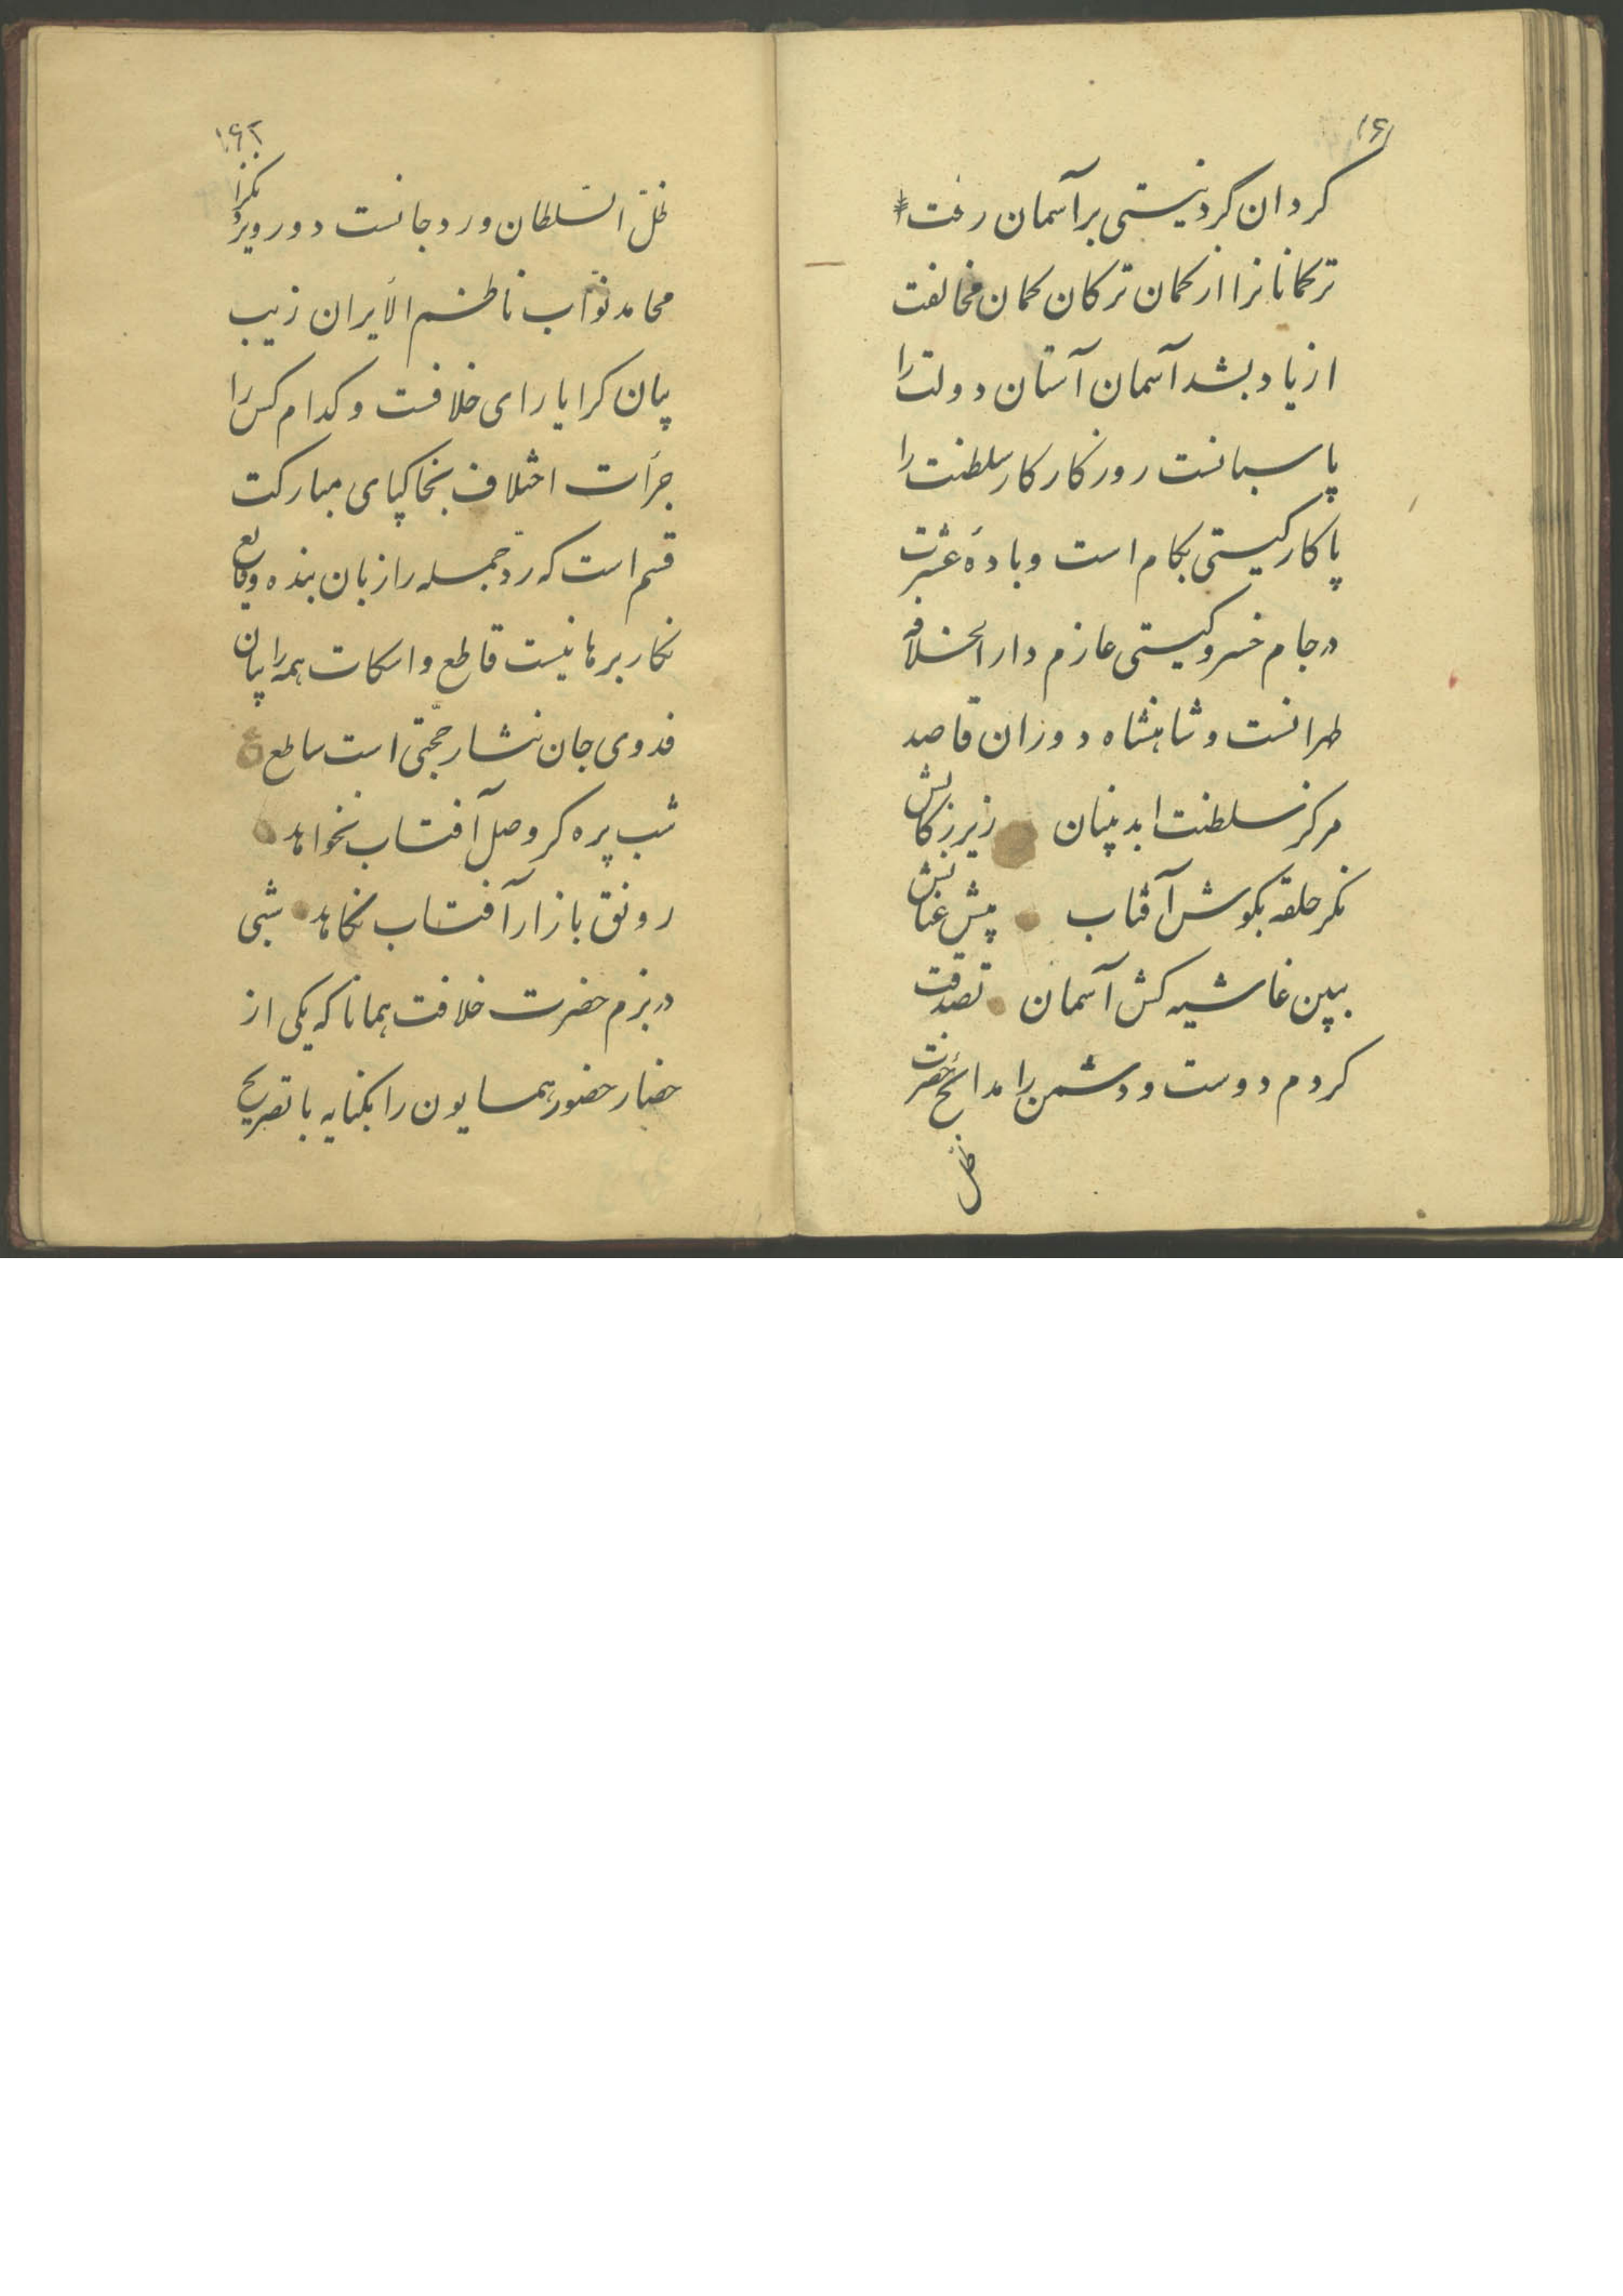 ۱۶۱
کردان کرد نیستی بر آسمان رفت
ترکمانانرا از کمان ترکان کمان مخالفت
از یاد بشد آسمان آستان دولت را
پاسبانست روزکار کار سلطنت را
پاکار کیستی بکام است و باده عشرت
در جام خسرو کیستی عازم دار الخلافه
طهرانست و شاهنشاه دوران قاصد
مرکز سلطنت ابد بنیان زیر رکابش
نکر حلقه بکوش آفتاب پیش عنانش
ببین غاشیه کش آسمان تصدقت
کردم دوست و دشمن را مدائح حضرت
ظل
۱۶۲
ظل السّلطان ورد جانست دور و نزدیک را
محامد نوّاب ناظم الایران زیب
بیان کرا یارای خلافست و کدام کس را
جرأت اختلاف بخاکپای مبارکت
قسم است که ردّ جمله را زبان بنده وقایع
نکار برهانیست قاطع و اسکات همه را بیان
فدوی جان نثار حجّتی است ساطع ع
شب پره کر وصل آفتاب نخواهد
رونق بازار آفتاب نکاهد شبی
در بزم حضرت خلافت همانا که یکی از
حضار حضور همایون را بکنایه یا تصریح